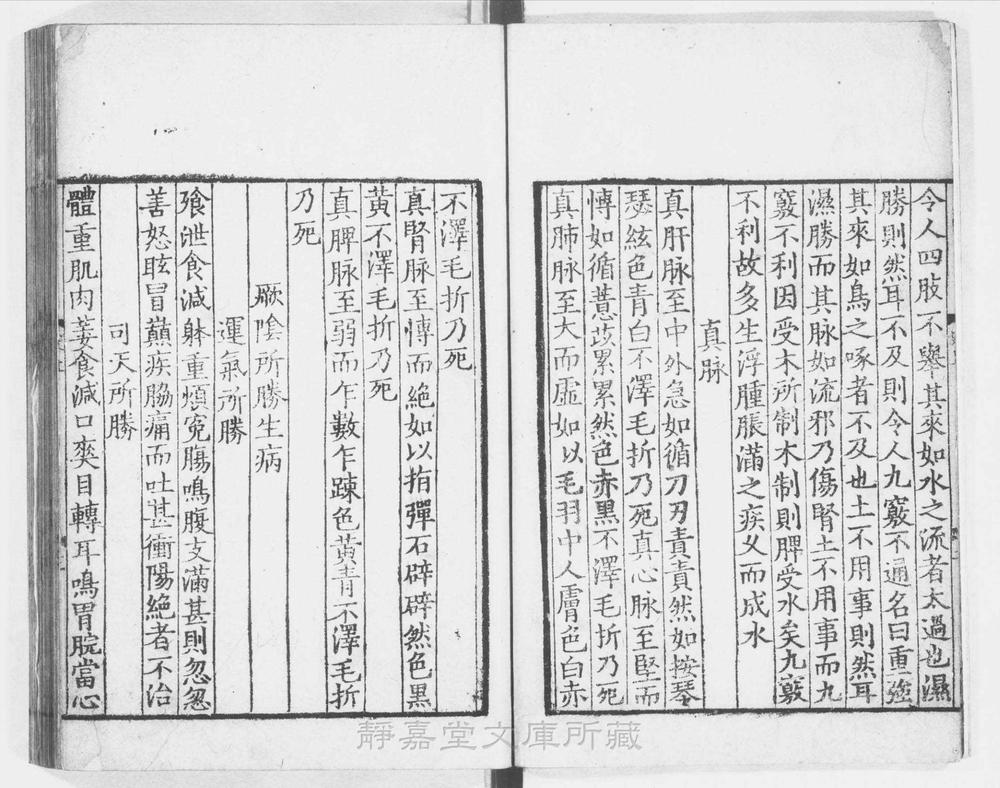 令人四肢不舉其來如水之流者太過也濕
勝則然耳不及則令人九竅不通名曰重強
其來如鳥之啄者不及也土不用事則然耳
濕勝而其脉如流邪乃傷腎土不用事而九
竅不利因受木所制木制則脾受水矣九竅
不利故多生浮腫脹滿之疾久而成水
真脉
真肝脉至中外急如循刀刃責責然如按琴
瑟絃色青白不澤毛折乃死真心脉至堅而
愽如循薏苡累累然色赤黑不澤毛折乃死
真肺脉至大而虛如以毛羽中人膚色白赤
不澤毛折乃死
真腎脉至愽而絕如以指彈石辟辟然色黑
黃不澤毛折乃死
真脾脉至弱而乍數乍踈色黃青不澤毛折
乃死
厥陰所勝生病
運氣所勝
飱泄食減躰重煩寃腸鳴腹支滿甚則忽忽
善怒眩冒巔疾脇痛而吐甚衝陽絕者不治
司天所勝
體重肌肉萎食減口爽目轉耳鳴胃脘當心
靜嘉堂文庫所藏